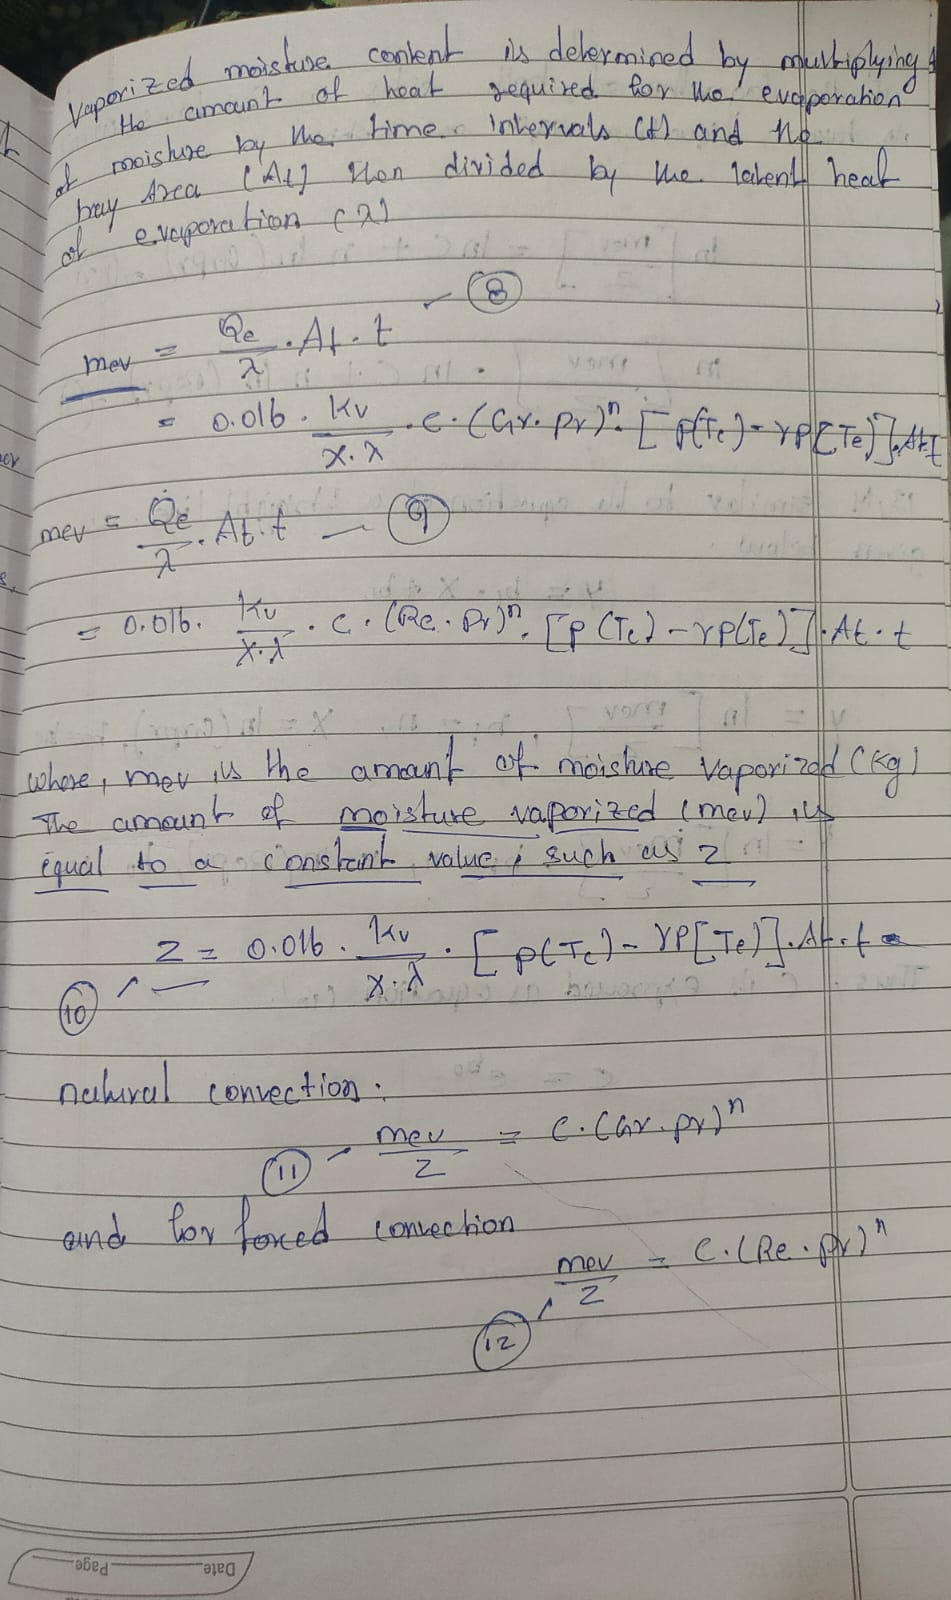 Vaporized moisture content is determined by multiplying
the amount of heat required for the evaporation
of moisture by the time intervals (t) and the
tray Area (At) then divided by the latent heat
of evaporation (λ)
mev = Qe/λ . At . t — (8)
= 0.016 . Kv/(X.λ) . C . (Gr. Pr)^n . [P(Tc) - γP[Te)] . At.t
mev = Q̇e/λ . At. t — (9)
= 0.016. Kv/(X.λ) . C . (Re . Pr)^n . [P (Tc) - γP(Te)] . At . t
where, mev is the amount of moisture vaporized (kg)
The amount of moisture vaporized (mev) is
equal to a constant value, such as Z
(10) Z = 0.016 . Kv/(X.λ) . [P(Tc) - γP[Te)] . At . t
natural convection :
(11) mev/Z = C . (Gr. Pr)^n
and for forced convection
(12) mev/Z = C . (Re . Pr)^n
Page
Date